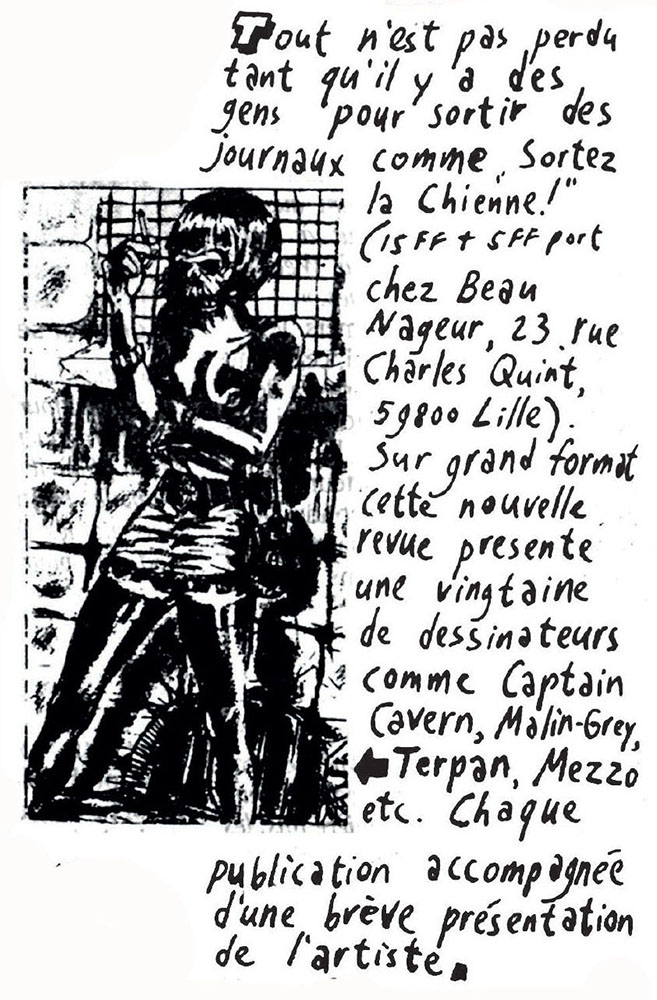 Tout n'est pas perdu
tant qu'il y a des
gens pour sortir des
journaux comme "Sortez
la Chienne!"
(15FF + 5FF port
chez Beau
Nageur, 23 rue
Charles Quint,
59800 Lille).
Sur grand format
cette nouvelle
revue presente
une vingtaine
de dessinateurs
comme Captain
Cavern, Malin-Grey,
Terpan, Mezzo
etc. Chaque
publication accompagnée
d'une brève présentation
de l'artiste.